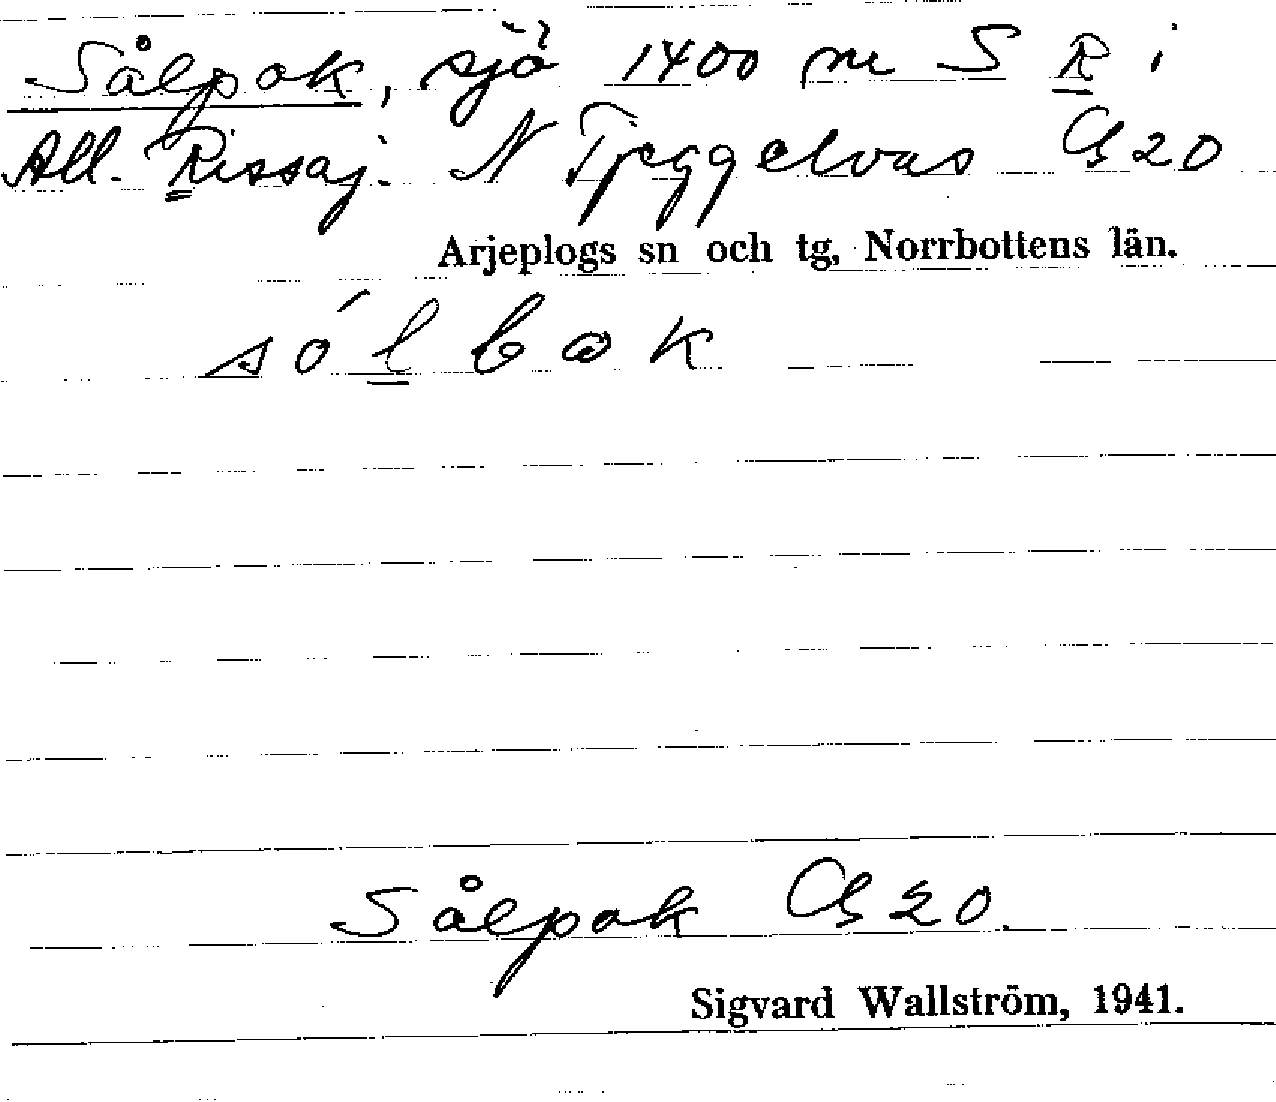 Sålpok, sjö 1400 m S R i
All. Rissaj. N Tjeggelvas G 20
Arjeplogs sn och tg, Norrbottens län.
sólbak
Sålpok G 20.
Sigvard Wallström, 1941.